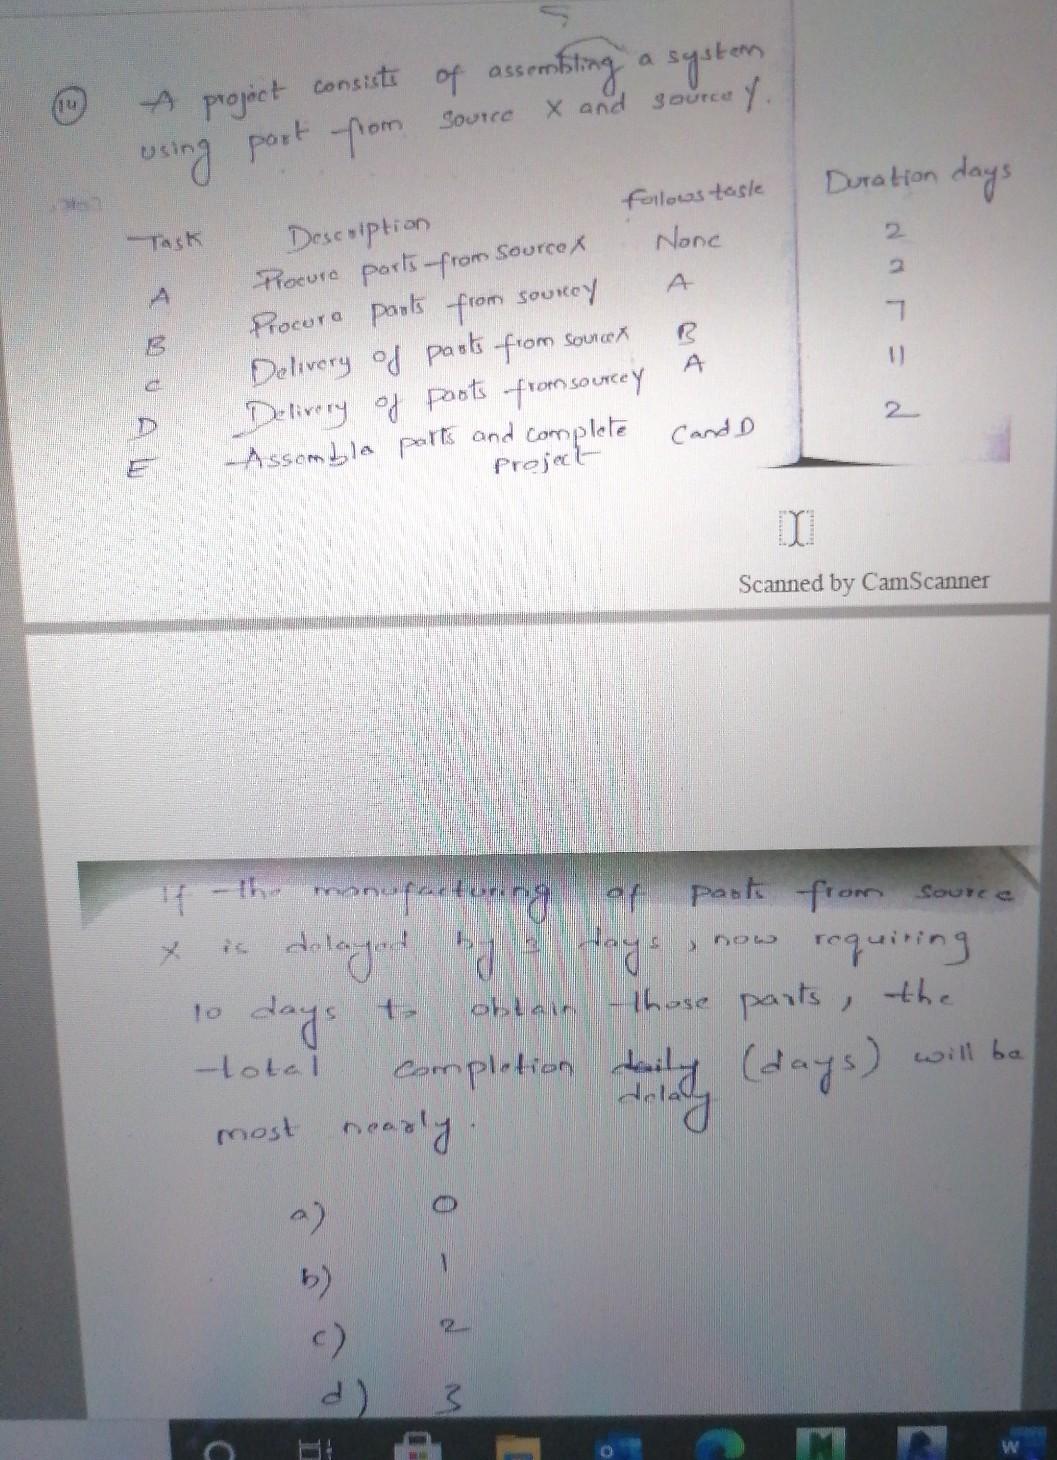 14 A project consists of assembling a system
using part from source X and source Y.
Task Description Follows task Duration days
A Procure parts from source X None 2
B Procure parts from source y A 2
C Delivery of parts from source X B 7
D Delivery of parts from source y A 11
E Assemble parts and complete project C and D 2
Scanned by CamScanner
If the manufacturing of parts from source
X is delayed by 3 days, now requiring
10 days to obtain those parts, the
total completion daily delay (days) will be
most nearly.
a) 0
b) 1
c) 2
d) 3
W